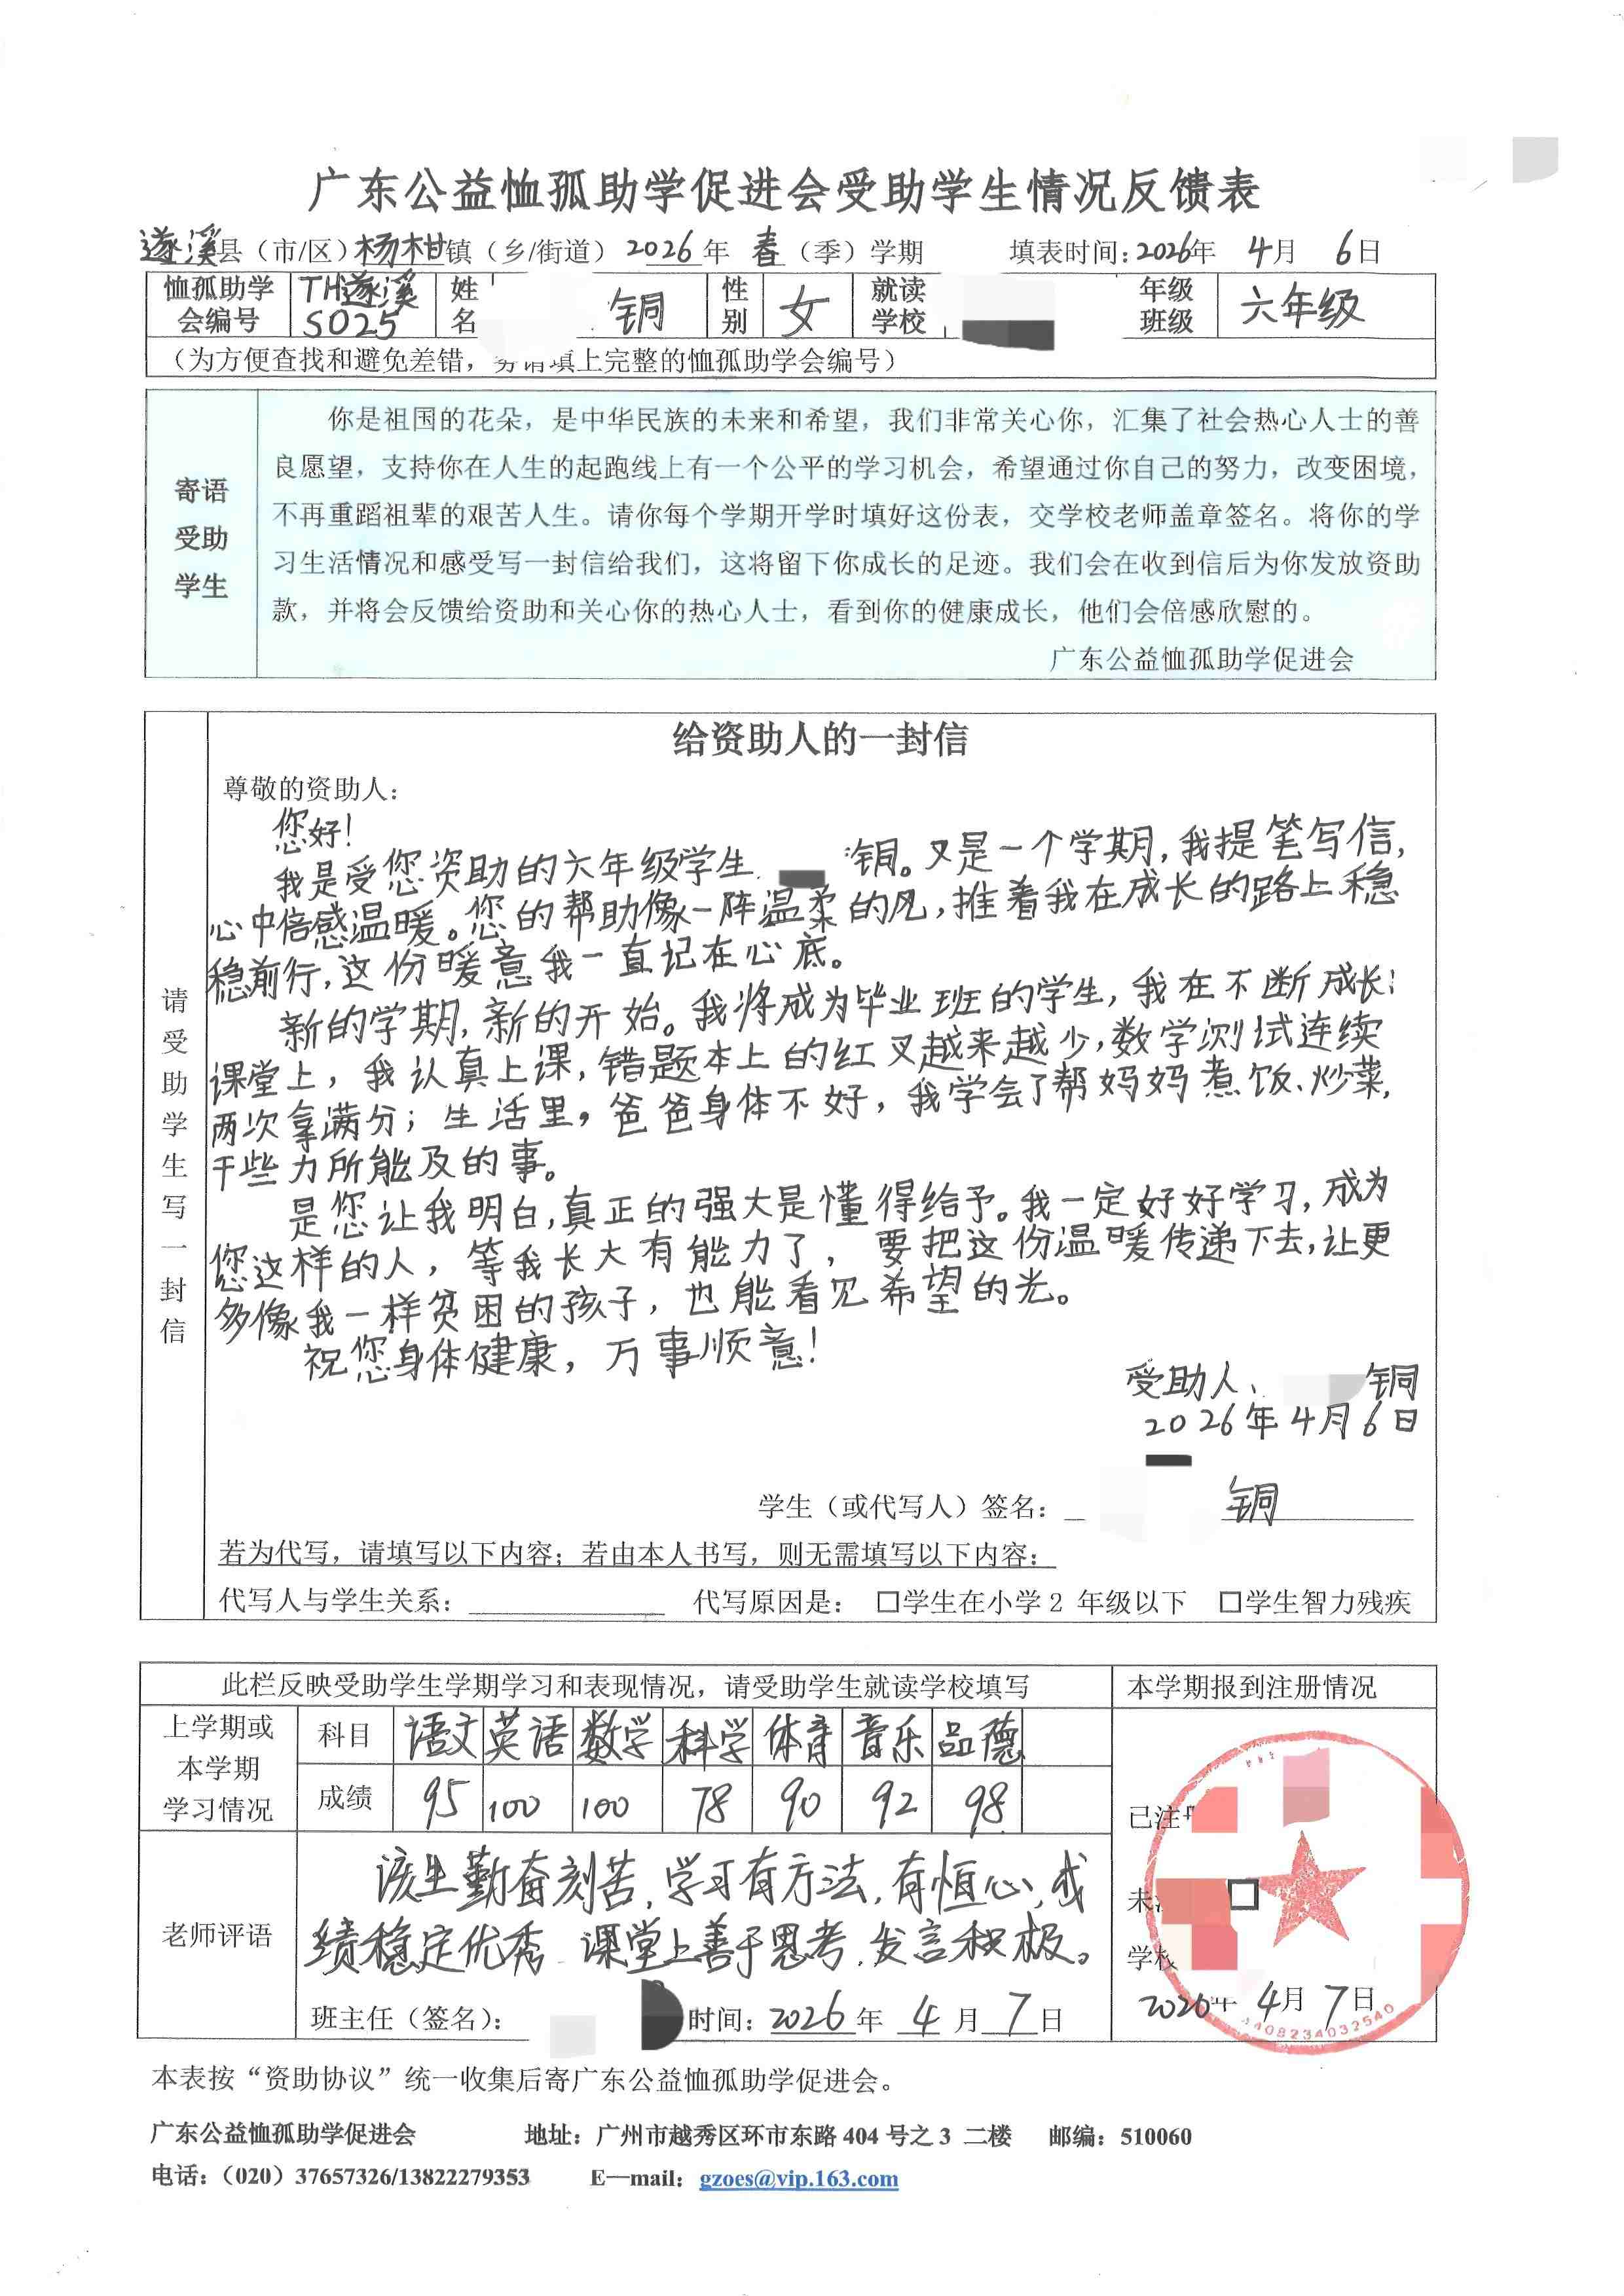 广东公益恤孤助学促进会受助学生情况反馈表
遂溪县（市/区）杨柑镇（乡/街道）2026年 春（季）学期 填表时间：2026年 4月 6日
恤孤助学会编号 TH遂溪S025 姓名 钿 性别 女 就读学校 年级班级 六年级
（为方便查找和避免差错，务请填上完整的恤孤助学会编号）
寄语受助学生
你是祖国的花朵，是中华民族的未来和希望，我们非常关心你，汇集了社会热心人士的善
良愿望，支持你在人生的起跑线上有一个公平的学习机会，希望通过你自己的努力，改变困境，
不再重蹈祖辈的艰苦人生。请你每个学期开学时填好这份表，交学校老师盖章签名。将你的学
习生活情况和感受写一封信给我们，这将留下你成长的足迹。我们会在收到信后为你发放资助
款，并将会反馈给资助和关心你的热心人士，看到你的健康成长，他们会倍感欣慰的。
广东公益恤孤助学促进会
请受助学生写一封信
给资助人的一封信
尊敬的资助人：
您好！
我是受您资助的六年级学生 钿。又是一个学期，我提笔写信，
心中倍感温暖。您的帮助像一阵温柔的风，推着我在成长的路上稳
稳前行，这份暖意我一直记在心底。
新的学期，新的开始。我将成为毕业班的学生，我在不断成长：
课堂上，我认真上课，错题本上的红叉越来越少，数学测试连续
两次拿满分；生活里，爸爸身体不好，我学会了帮妈妈煮饭、炒菜，
干些力所能及的事。
是您让我明白，真正的强大是懂得给予。我一定好好学习，成为
您这样的人，等我长大有能力了，要把这份温暖传递下去，让更
多像我一样贫困的孩子，也能看见希望的光。
祝您身体健康，万事顺意！
受助人、 钿
2026年4月6日
学生（或代写人）签名： 钿
若为代写，请填写以下内容；若由本人书写，则无需填写以下内容：
代写人与学生关系： 代写原因是： □学生在小学2 年级以下 □学生智力残疾
此栏反映受助学生学期学习和表现情况，请受助学生就读学校填写 本学期报到注册情况
上学期或本学期学习情况
科目 语文 英语 数学 科学 体育 音乐 品德
成绩 95 100 100 78 90 92 98
老师评语
该生勤奋刻苦，学习有方法，有恒心，成
绩稳定优秀 课堂上善于思考，发言积极。
班主任（签名）： 时间：2026年 4月 7日
已注
未
学校
2026年 4月 7日
4408234032540
本表按“资助协议”统一收集后寄广东公益恤孤助学促进会。
广东公益恤孤助学促进会 地址：广州市越秀区环市东路 404 号之 3 二楼 邮编：510060
电话：（020）37657326/13822279353 E—mail：gzoes@vip.163.com